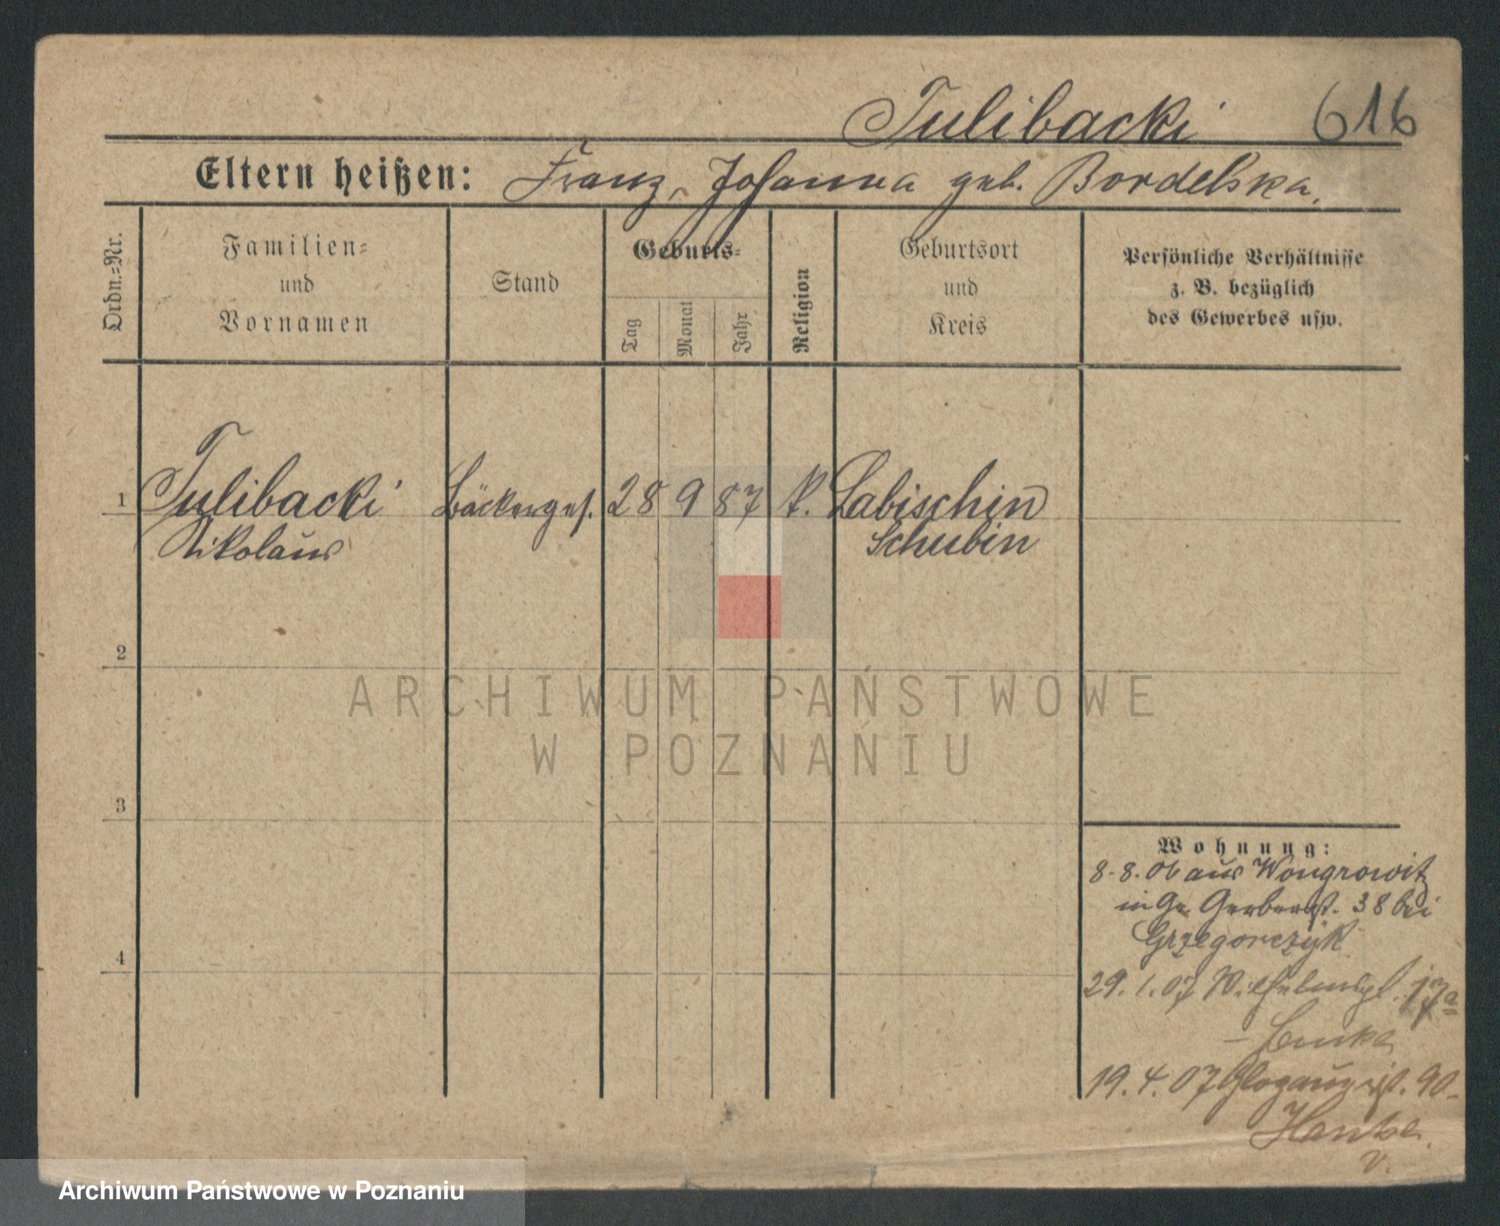 Tulibacki 616
Eltern heißen: Franz, Johanna geb. Bordelska.
Ordn.=Nr.
Familien=
und
Vornamen
Stand
Geburts=
Tag
Monat
Jahr
Religion
Geburtsort
und
Kreis
Persönliche Verhältnisse
z. B. bezüglich
des Gewerbes usw.
1 Tulibacki Bäckerges. 28 9 87 k. Labischin
Nikolaus Schubin
2
3
4
Wohnung:
8.8.06 aus Wongrowitz
in Gr. Gerberst. 38 bei
Grzegorczyk
29.1.07 Wilhelmspl. 17a
19.4.07 Glogauerst. 90
ARCHIWUM PAŃSTWOWE
W POZNANIU
Archiwum Państwowe w Poznaniu